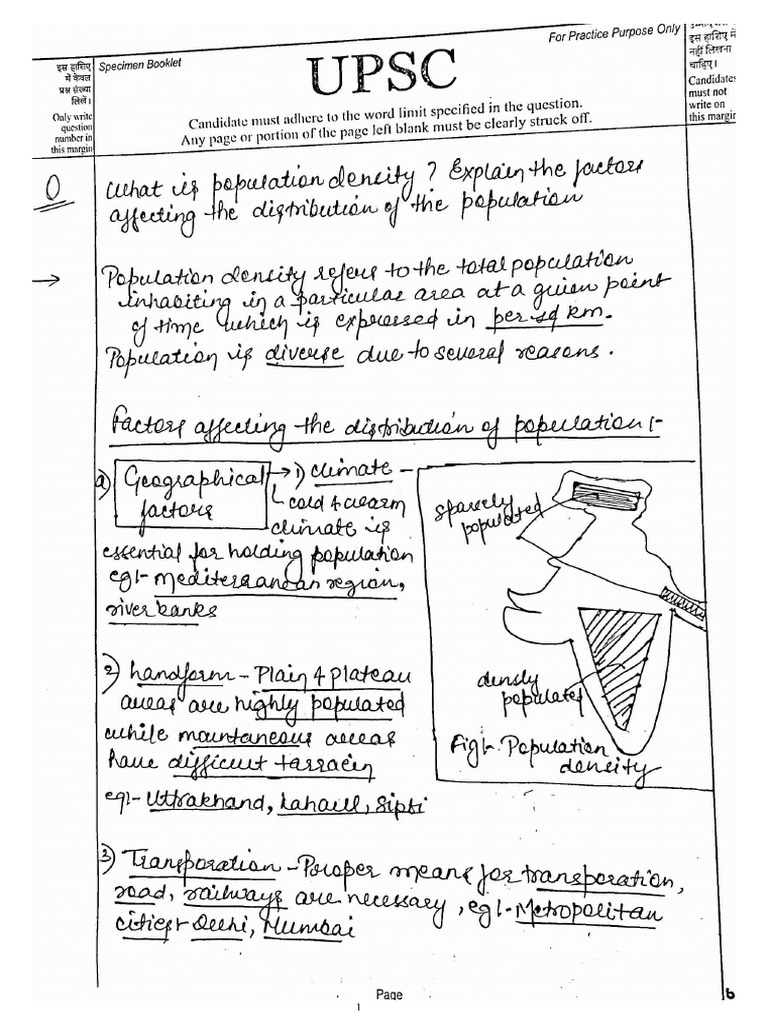 For Practice Purpose Only
Specimen Booklet
UPSC
Candidate must adhere to the word limit specified in the question.
Any page or portion of the page left blank must be clearly struck off.
इस हाशिए
में केवल
प्रश्न संख्या
लिखें।
Only write
question
number in
this margin
इस हाशिए में
नहीं लिखना
चाहिए।
Candidates
must not
write on
this margin
Q
What is population density? Explain the factors
affecting the distribution of the population
→ Population density refers to the total population
inhabiting in a particular area at a given point
of time which is expressed in per sq km.
Population is diverse due to several reasons.
Factors affecting the distribution of population:-
a) Geographical factors → 1) climate –
cold & warm
climate is
essential for holding population
eg:- Mediterranean region,
river banks
2) Landform – Plain & plateau
areas are highly populated
while mountaneous areas
have difficult tarracin
eg:- Uttrakhand, Lahaul, Sipti
sparsely
populated
densly
populated
Fig:- Population
density
3) Transporation – Proper means for transporation,
road, railways are necessary, eg:- Metropolitan
cities:- Delhi, Mumbai
Page
1
6